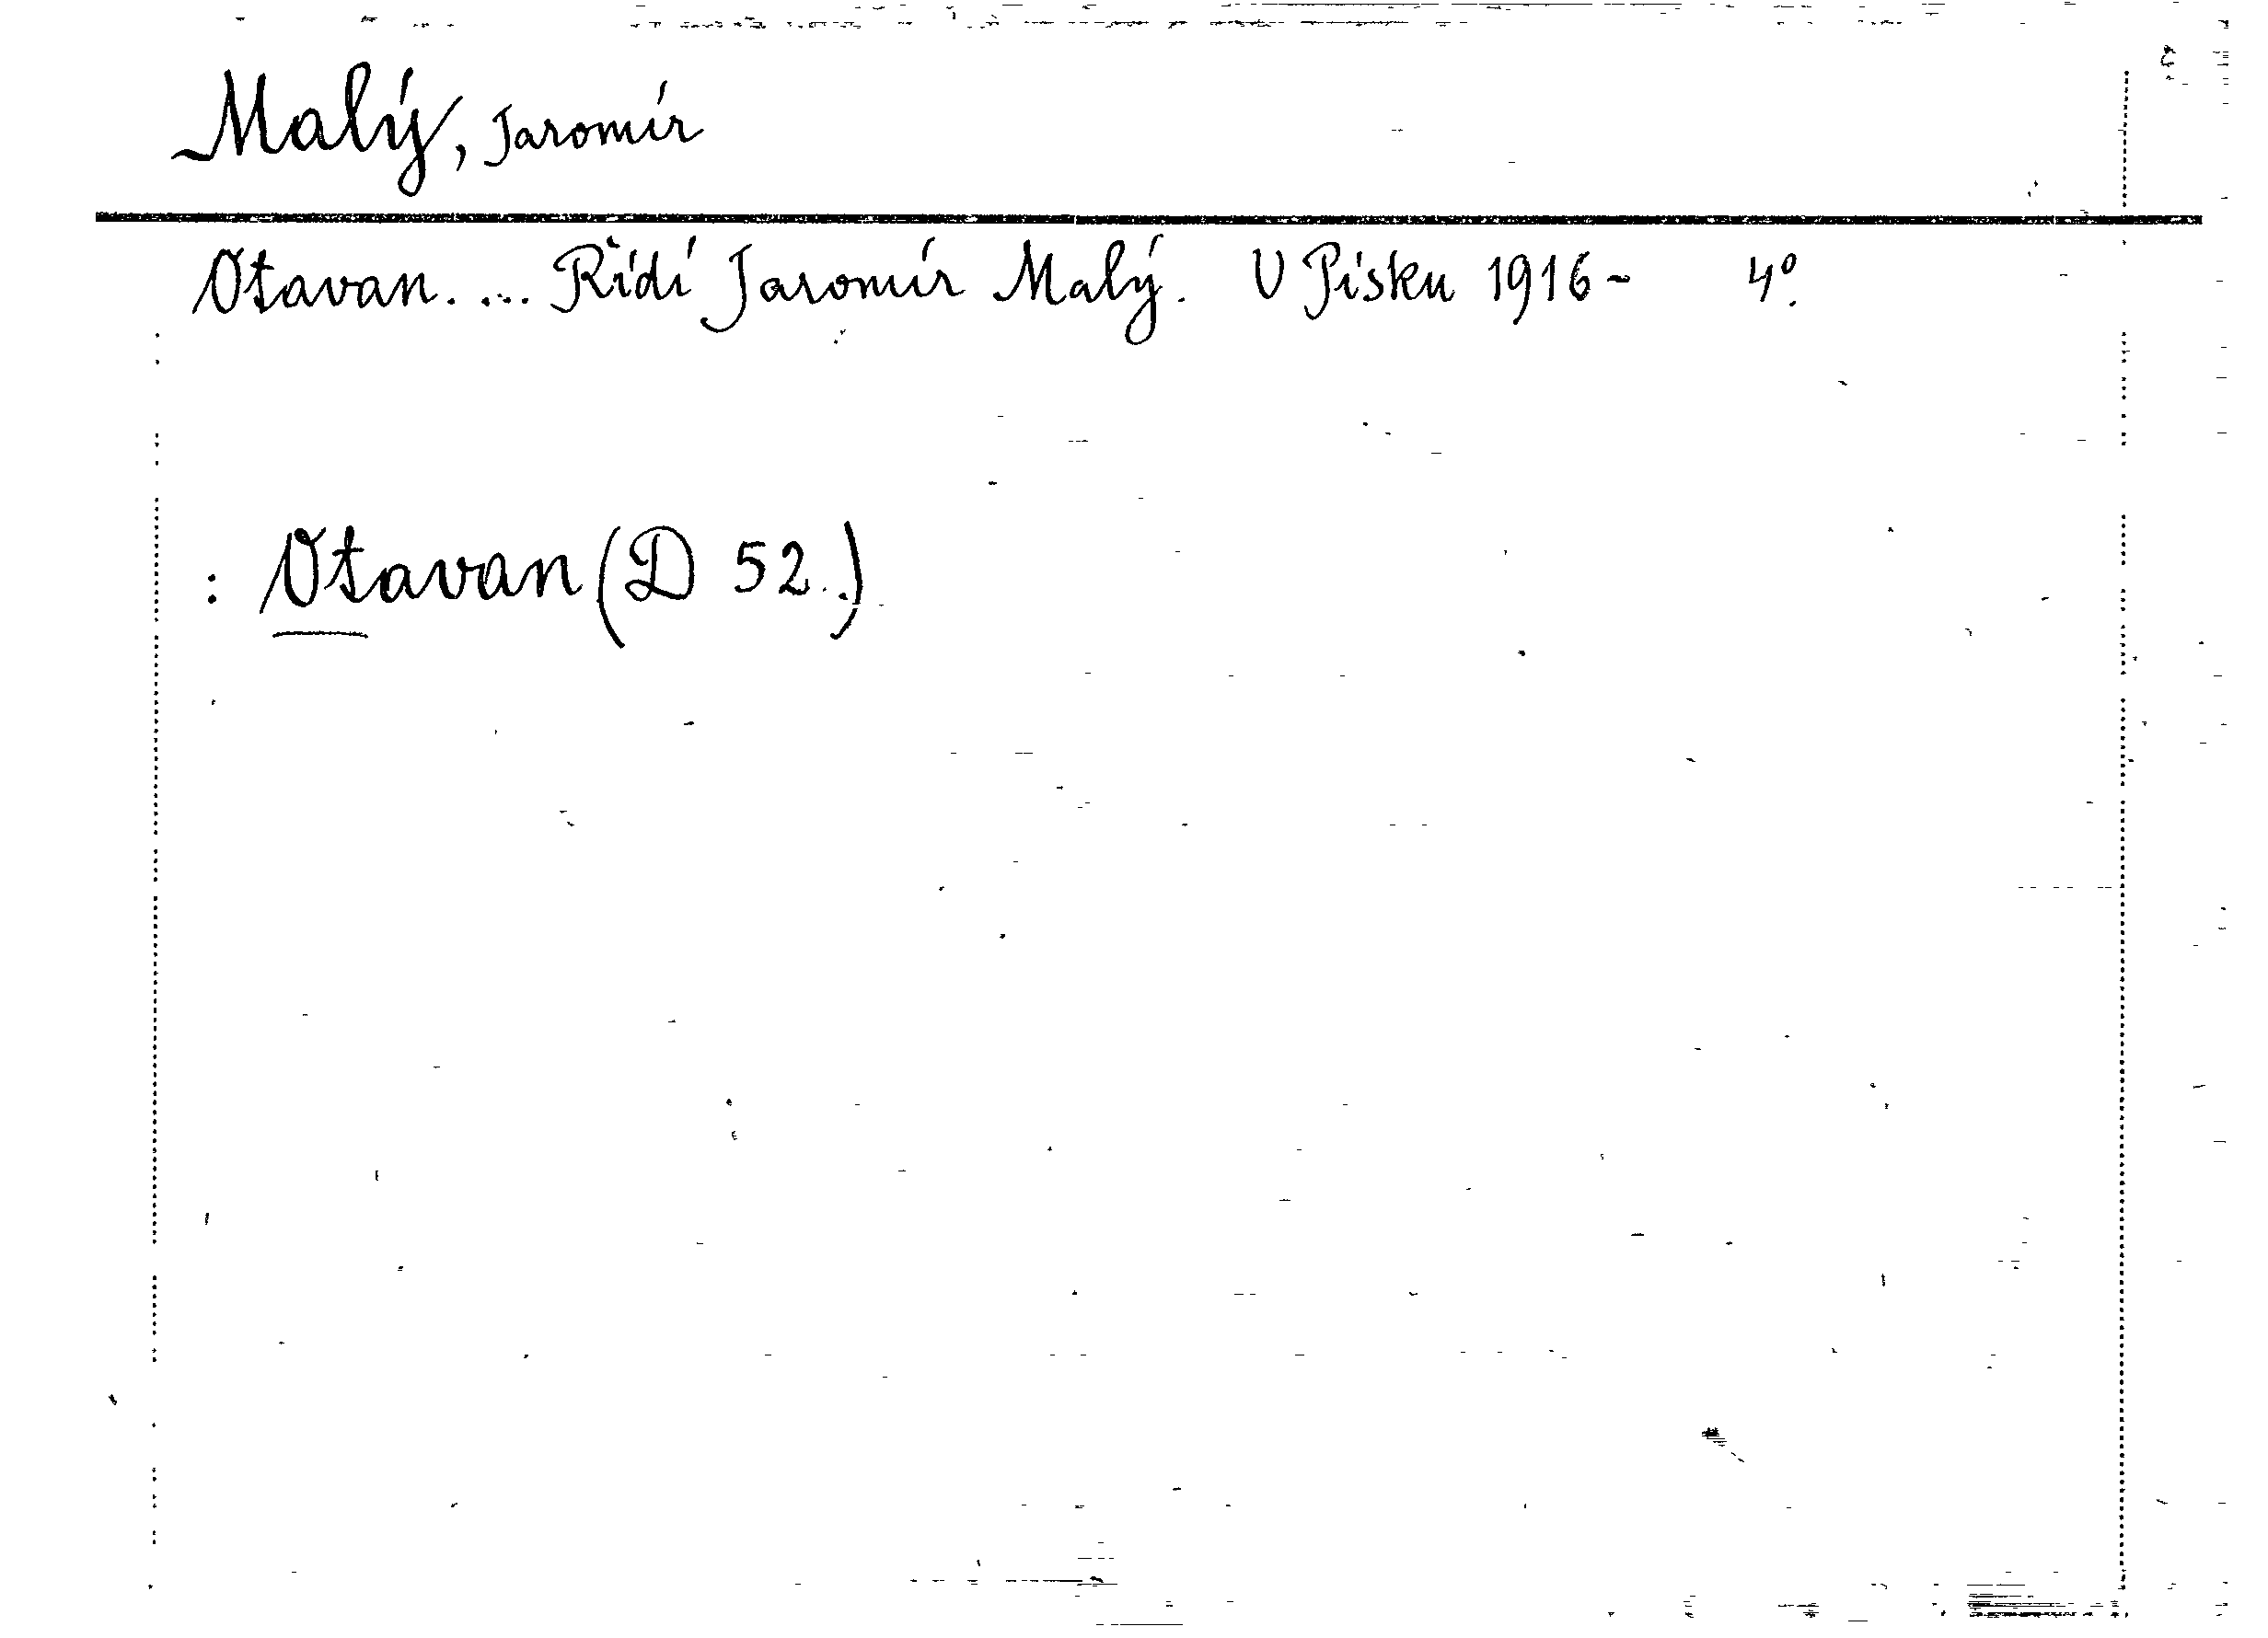 Malý, Jaromír
Otavan. ... Řídí Jaromír Malý. V Písku 1916- 4º.
: Otavan (D 52.)